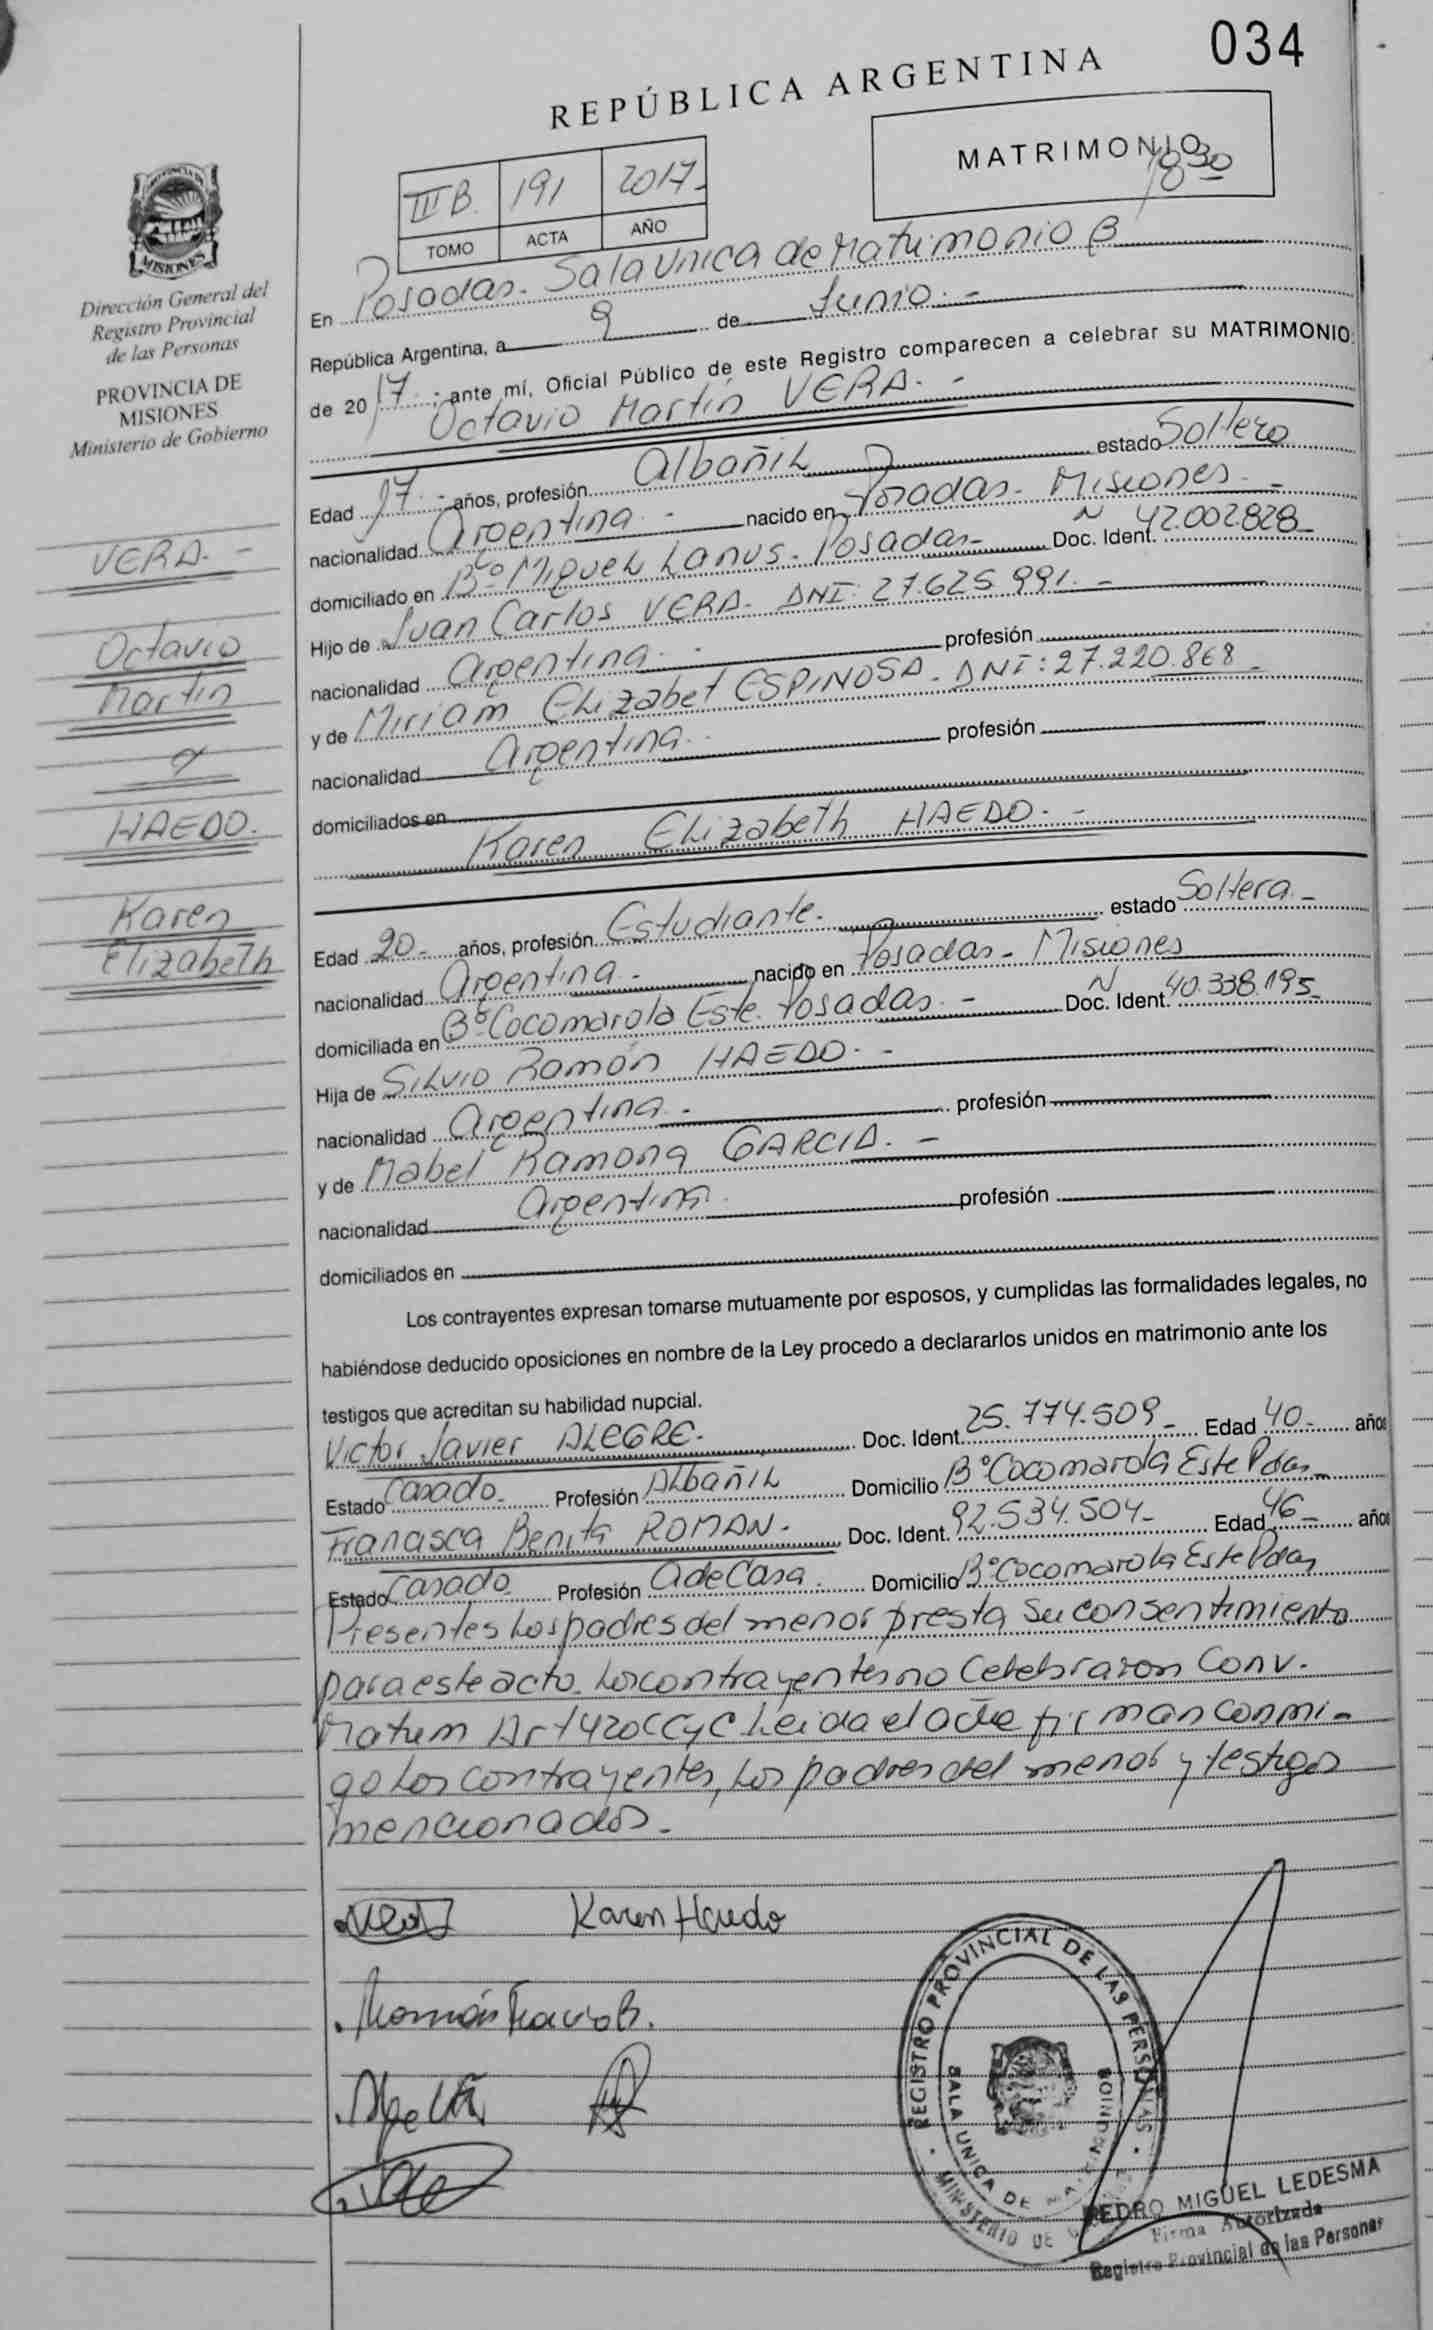 034
REPÚBLICA ARGENTINA
MATRIMONIO
1830
III B. 191 2017-
TOMO ACTA AÑO
MISIONES
Dirección General del
Registro Provincial
de las Personas
PROVINCIA DE
MISIONES
Ministerio de Gobierno
VERA. -
Octavio
Martin
y
HAEDO.
Karen
Elizabeth
En Posadas. Sala Unica de Matrimonio B
República Argentina, a 9 de Junio. -
de 2017. ; ante mí, Oficial Público de este Registro comparecen a celebrar su MATRIMONIO:
Octavio Martín VERA. -
Edad 17. - años, profesión Albañil estado Soltero
nacionalidad Argentina. - nacido en Posadas. Misiones. -
domiciliado en Bº Miguel Lanus. Posadas - Doc. Ident. N 42.002.828
Hijo de Juan Carlos VERA. DNI: 27.625.991. -
nacionalidad Argentina. - profesión
y de Miriam Elizabet ESPINOSA. DNI: 27.220.868 -
nacionalidad Argentina. profesión
domiciliados en
Karen Elizabeth HAEDO. -
Edad 20 - años, profesión Estudiante. estado Soltera. -
nacionalidad Argentina. - nacido en Posadas - Misiones
domiciliada en Bº Cocomarola Este. Posadas. - Doc. Ident. N 40.338.195
Hija de Silvio Ramón HAEDO. -
nacionalidad Argentina. - profesión
y de Mabel Ramona GARCIA. -
nacionalidad Argentina. profesión
domiciliados en
Los contrayentes expresan tomarse mutuamente por esposos, y cumplidas las formalidades legales, no
habiéndose deducido oposiciones en nombre de la Ley procedo a declararlos unidos en matrimonio ante los
testigos que acreditan su habilidad nupcial.
Victor Javier ALEGRE. Doc. Ident. 25.774.509 - Edad 40 - años
Estado Casado. Profesión Albañil Domicilio Bº Cocomarola Este Pdas
Francisca Benita ROMAN. Doc. Ident. 92.534.504 - Edad 46 - años
Estado Casado Profesión A de Casa. Domicilio Bº Cocomarola Este Pdas
Presentes los padres del menor presta su consentimiento
para este acto. Los contrayentes no Celebraron Conv.
Matrim Art 420 CCyC Leida el acta firman conmi-
go los contrayentes, los padres del menor y testigos
mencionados.
Karen Haedo
REGISTRO PROVINCIAL DE LAS PERSONAS
SALA UNICA DE MATRIMONIOS
MINISTERIO DE
PEDRO MIGUEL LEDESMA
Firma Autorizada
Registro Provincial de las Personas